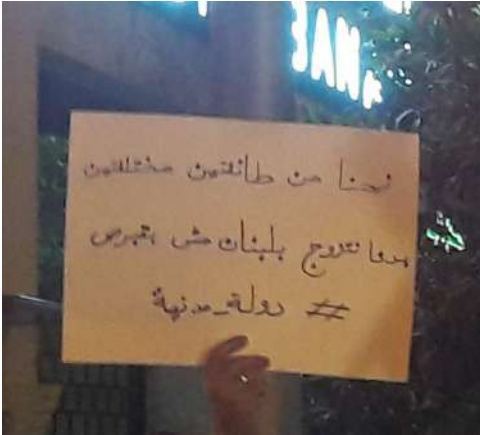 BAN
نحنا من طائفتين مختلفتين
بدنا نتزوج بلبنان مش بقبرص
# دولة_مدنية